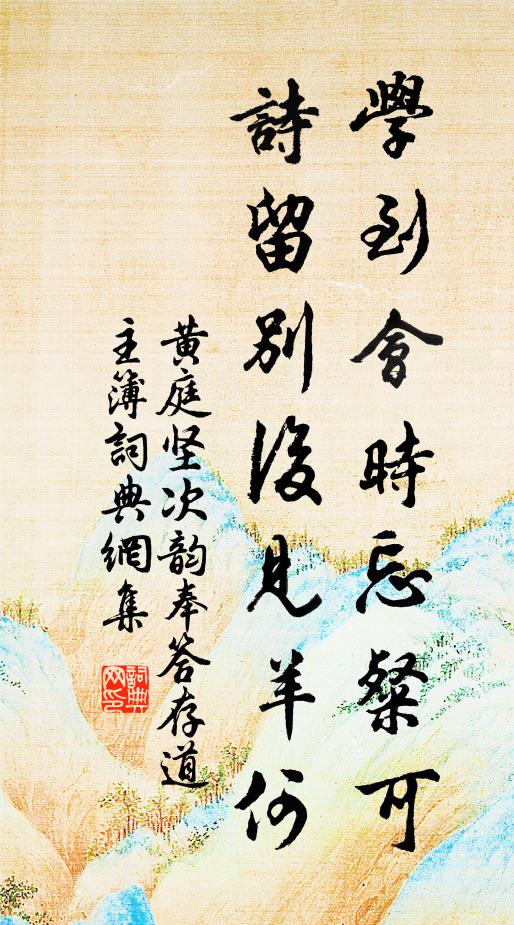 學到會時忘粲可
詩留別後見羊何
黄庭坚次韵奉答存道
主簿詞典網集
詞典网印